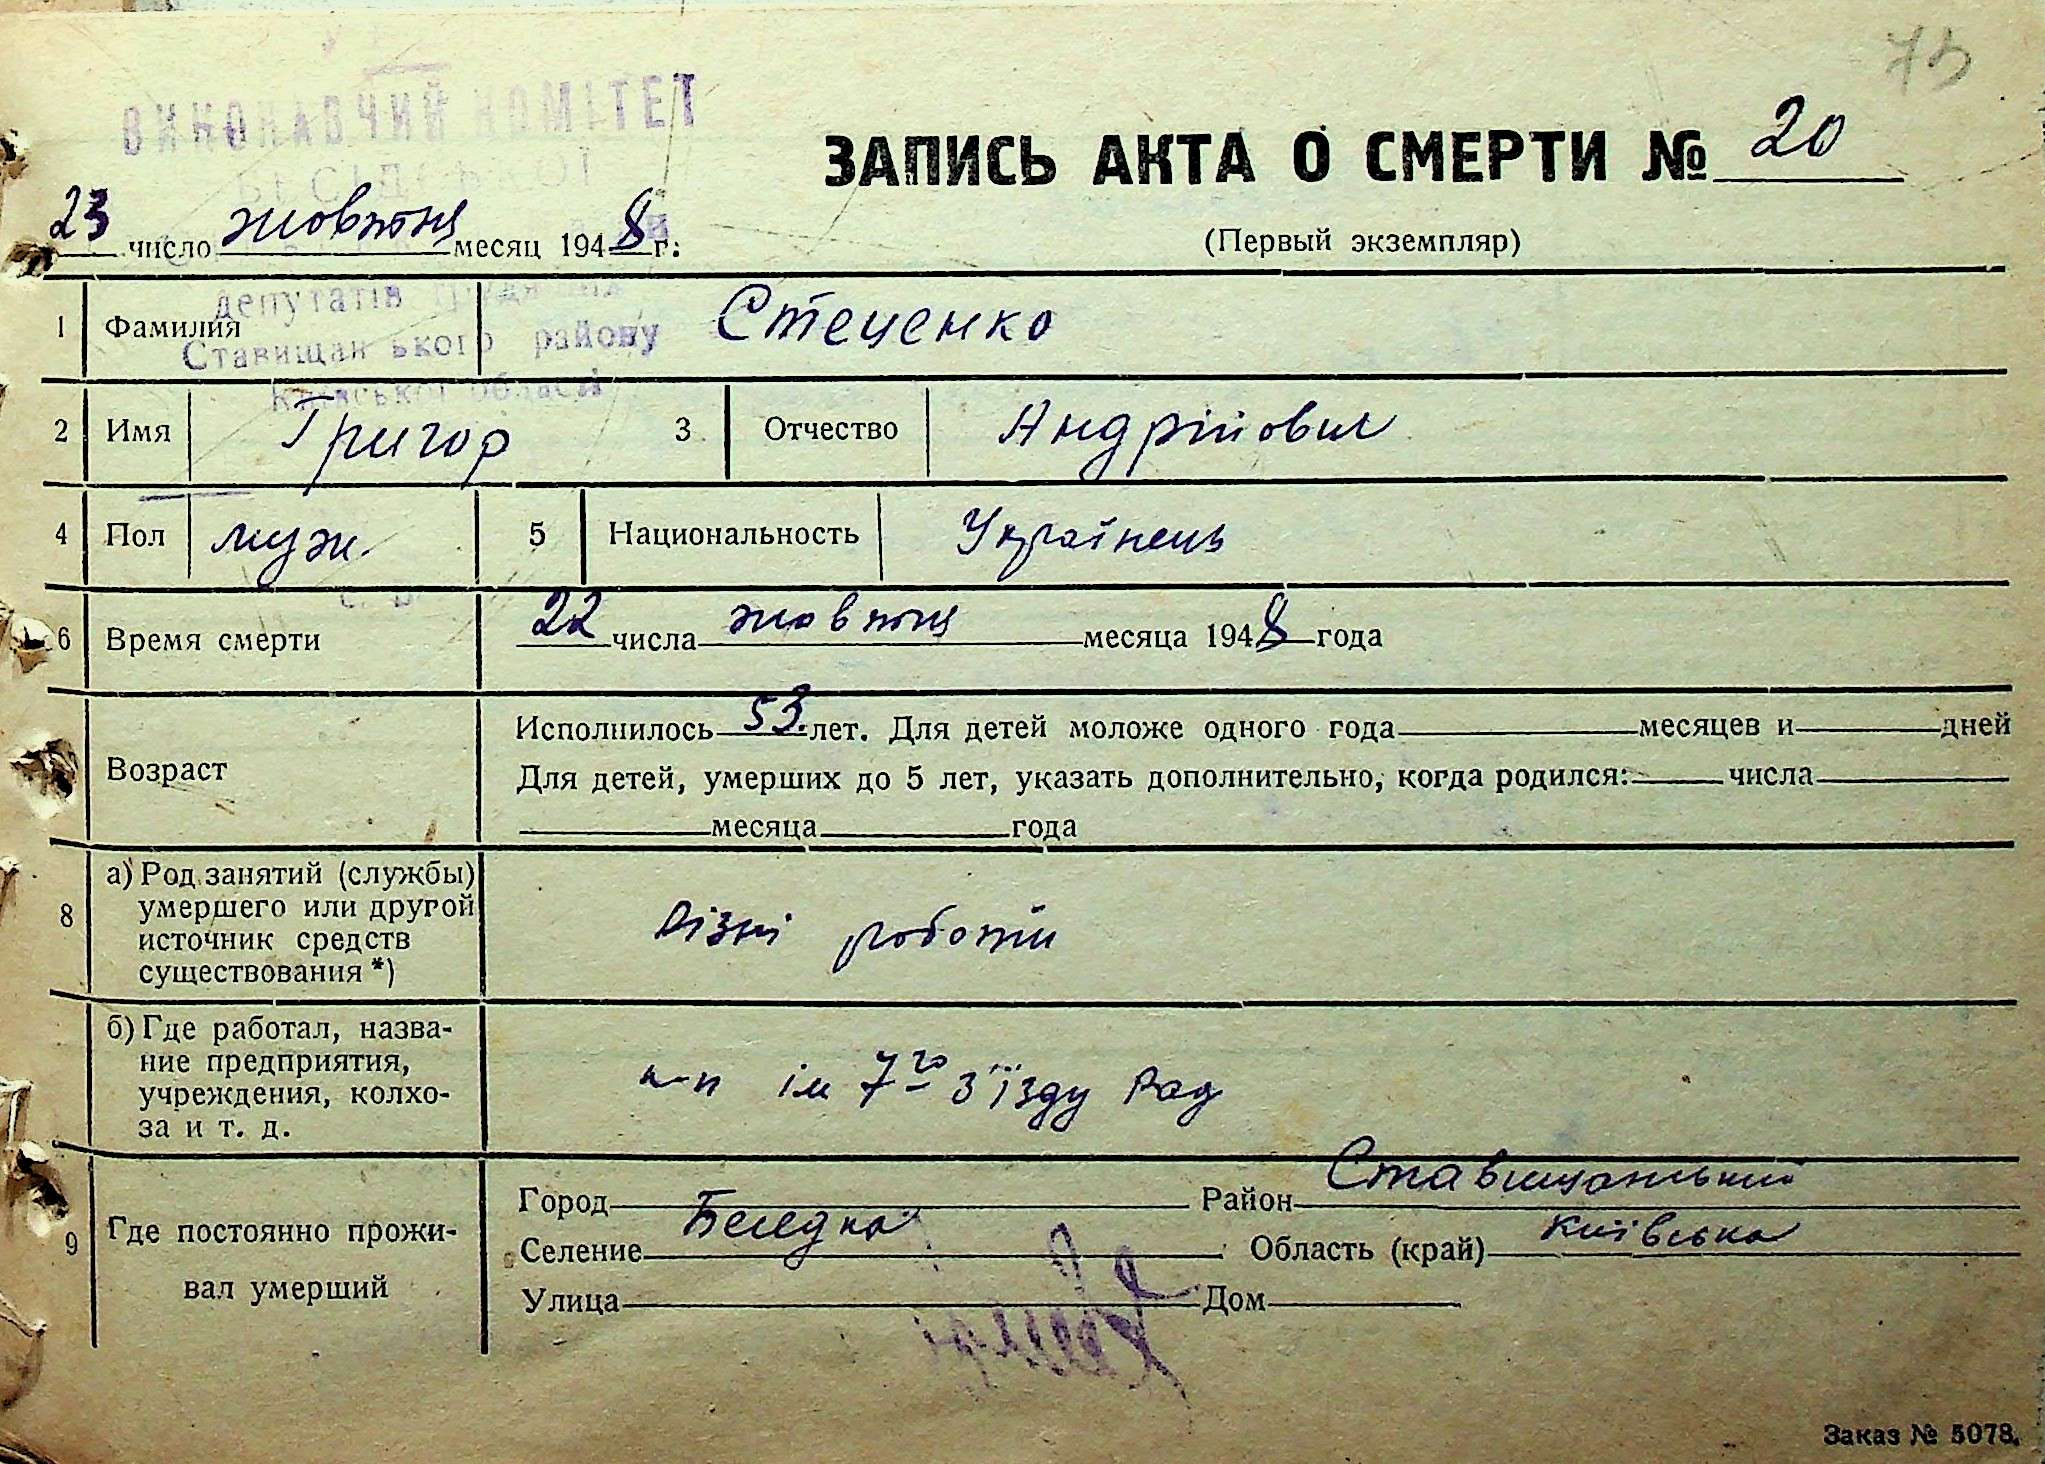 75
ВИКОНАВЧИЙ КОМІТЕТ
депутатів
Ставищанського району
Київської області
ЗАПИСЬ АКТА О СМЕРТИ № 20
(Первый экземпляр)
23 число жовтня месяц 1948 г.
1 Фамилия Стеценко
2 Имя Григор 3 Отчество Андрійович
4 Пол муж. 5 Национальность Українець
6 Время смерти 22 числа жовтня месяца 1948 года
Возраст
Исполнилось 53 лет. Для детей моложе одного года месяцев и дней
Для детей, умерших до 5 лет, указать дополнительно, когда родился: числа
месяца года
8 а) Род занятий (службы)
умершего или другой
источник средств
существования *)
Різні роботи
б) Где работал, назва-
ние предприятия,
учреждения, колхо-
за и т. д.
к-п ім 7го з'їзду Рад
9 Где постоянно прожи-
вал умерший
Город Район Ставищанський
Селение Бесідка Область (край) Київська
Улица Дом
Заказ № 5078.